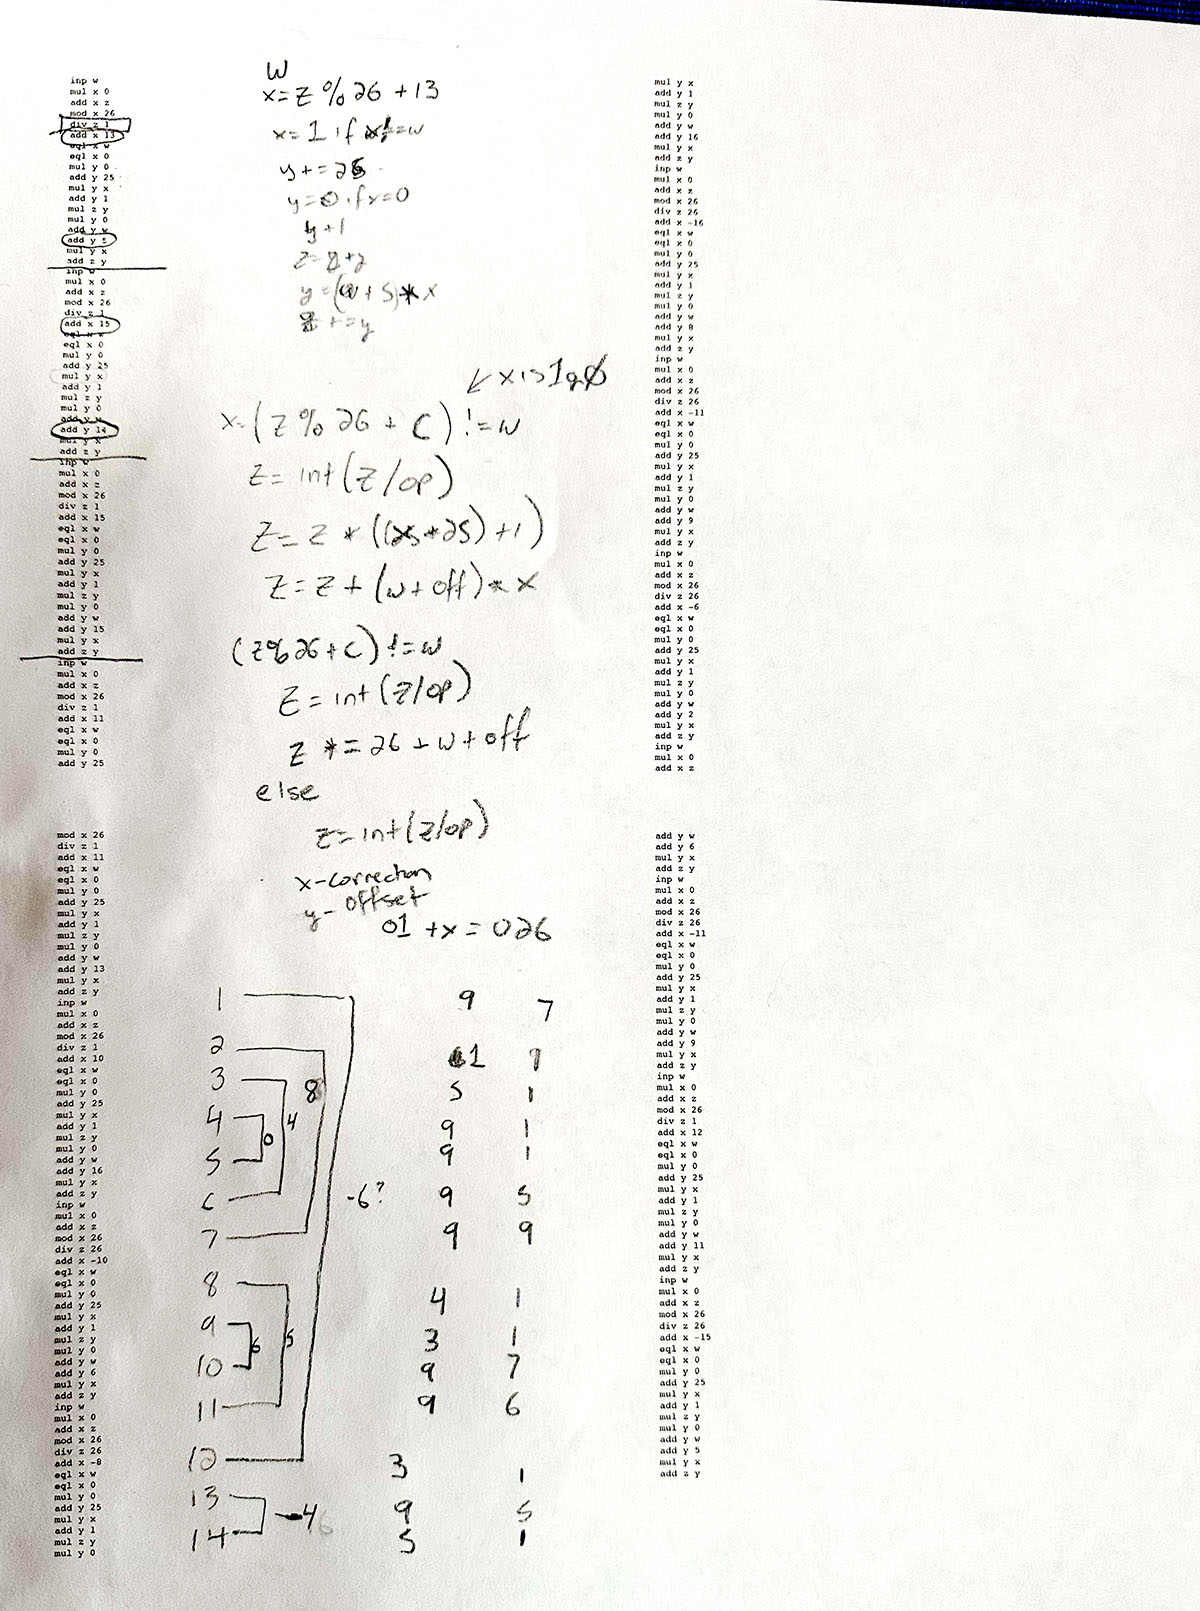 inp w
mul x 0
add x z
mod x 26
div z 1
add x 13
eql x w
eql x 0
mul y 0
add y 25
mul y x
add y 1
mul z y
mul y 0
add y w
add y 5
mul y x
add z y
inp w
mul x 0
add x z
mod x 26
div z 1
add x 15
eql x w
eql x 0
mul y 0
add y 25
mul y x
add y 1
mul z y
mul y 0
add y w
add y 14
mul y x
add z y
inp w
mul x 0
add x z
mod x 26
div z 1
add x 15
eql x w
eql x 0
mul y 0
add y 25
mul y x
add y 1
mul z y
mul y 0
add y w
add y 15
mul y x
add z y
inp w
mul x 0
add x z
mod x 26
div z 1
add x 11
eql x w
eql x 0
mul y 0
add y 25
mod x 26
div z 1
add x 11
eql x w
eql x 0
mul y 0
add y 25
mul y x
add y 1
mul z y
mul y 0
add y w
add y 13
mul y x
add z y
inp w
mul x 0
add x z
mod x 26
div z 1
add x 10
eql x w
eql x 0
mul y 0
add y 25
mul y x
add y 1
mul z y
mul y 0
add y w
add y 16
mul y x
add z y
inp w
mul x 0
add x z
mod x 26
div z 26
add x -10
eql x w
eql x 0
mul y 0
add y 25
mul y x
add y 1
mul z y
mul y 0
add y w
add y 6
mul y x
add z y
inp w
mul x 0
add x z
mod x 26
div z 26
add x -8
eql x w
eql x 0
mul y 0
add y 25
mul y x
add y 1
mul z y
mul y 0
w
x=z%26+13
x=1 if x!=w
y+=26
y=0 if x=0
y+1
y=(w+5)*x
z+=y
x is 1 or 0
x=(z%26+C)!=w
z=int(z/op)
z=z*((x*25)+1)
z=z+(w+off)*x
(z%26+C)!=w
z=int(z/op)
z*=26+w+off
else
z=int(z/op)
x-correction
y-offset
01+x=026
1 9 7
2 1 9
3 8 5 1
4 4 9 1
5 0 9 1
6 -6? 9 5
7 9 9
8 4 1
9 5 3 1
10 6 9 7
11 9 6
12 3 1
13 -4 9 5
14 5 1
mul y x
add y 1
mul z y
mul y 0
add y w
add y 16
mul y x
add z y
inp w
mul x 0
add x z
mod x 26
div z 26
add x -16
eql x w
eql x 0
mul y 0
add y 25
mul y x
add y 1
mul z y
mul y 0
add y w
add y 8
mul y x
add z y
inp w
mul x 0
add x z
mod x 26
div z 26
add x -11
eql x w
eql x 0
mul y 0
add y 25
mul y x
add y 1
mul z y
mul y 0
add y w
add y 9
mul y x
add z y
inp w
mul x 0
add x z
mod x 26
div z 26
add x -6
eql x w
eql x 0
mul y 0
add y 25
mul y x
add y 1
mul z y
mul y 0
add y w
add y 2
mul y x
add z y
inp w
mul x 0
add x z
add y w
add y 6
mul y x
add z y
inp w
mul x 0
add x z
mod x 26
div z 26
add x -11
eql x w
eql x 0
mul y 0
add y 25
mul y x
add y 1
mul z y
mul y 0
add y w
add y 9
mul y x
add z y
inp w
mul x 0
add x z
mod x 26
div z 1
add x 12
eql x w
eql x 0
mul y 0
add y 25
mul y x
add y 1
mul z y
mul y 0
add y w
add y 11
mul y x
add z y
inp w
mul x 0
add x z
mod x 26
div z 26
add x -15
eql x w
eql x 0
mul y 0
add y 25
mul y x
add y 1
mul z y
mul y 0
add y w
add y 5
mul y x
add z y